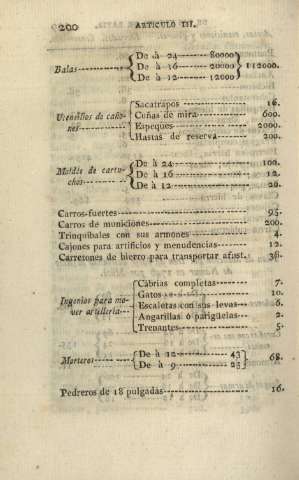 200 ARTICULO III.
Balas { De à 24 80000 } 112000.
De à 16 20000
De à 12 12000
Utensilios de caño-
nes { Sacatrapos 16.
Cuñas de mira 600.
Espeques 2000.
Hastas de reserva 200.
Moldes de cartu-
chos { De à 24 100.
De à 16 12.
De à 12 20.
Carros-fuertes 95.
Carros de municiones 200.
Trinquibales con sus armones 4.
Cajones para artificios y menudencias 12.
Carretones de hierro para transportar afust. 36.
Ingenios para mo-
ver artillería { Cábrias completas 7.
Gatos 10.
Escaletas con sus levas 6.
Angarillas ó parigüelas 2.
Trenantes 5.
Morteros { De à 12 43 } 68.
De à 9 25
Pedreros de 18 pulgadas 16.